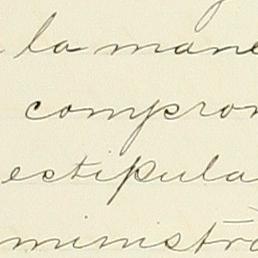 la mane
comprom
estipula
ministra